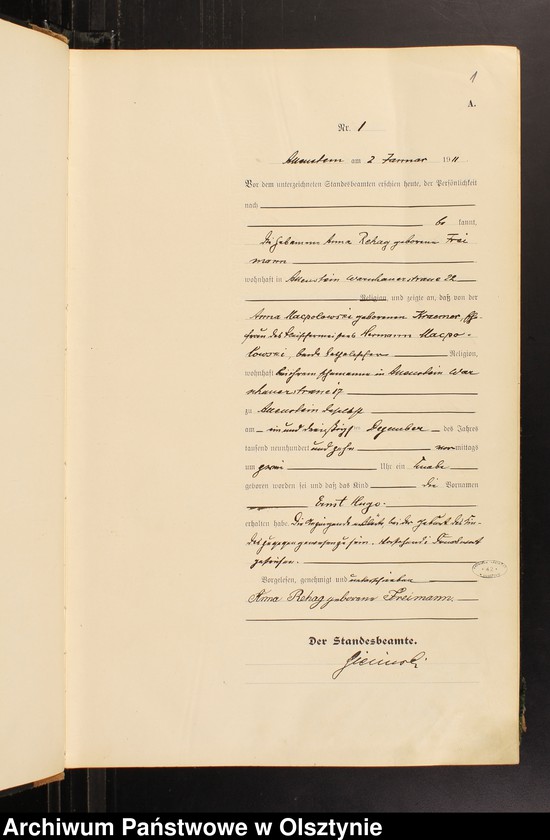 1
A.
Nr. 1
Allenstein am 2 Januar 1911
Vor dem unterzeichneten Standesbeamten erschien heute, der Persönlichkeit
nach
be kannt,
die Hebamme Anna Rehag geborene Frei
mann
wohnhaft in Allenstein Warschauerstrasse 32
Religion, und zeigte an, daß von der
Anna Macpolowski geborenen Kraemer, Ehe-
frau des Fleischermeisters Hermann Macpo-
lowski, beide katholischer Religion,
wohnhaft bei ihrem Ehemanne in Allenstein War
schauerstrasse 17
zu Allenstein daselbst
am ein und dreißigsten Dezember des Jahres
tausend neunhundert und zehn vormittags
um zwei Uhr ein Knabe
geboren worden sei und daß das Kind die Vornamen
Ernst Hugo
erhalten habe. Die Anzeigende erklärte, bei der Geburt des Kin-
des zugegen gewesen zu sein. Vorstehend 1 Druckwort
gestrichen.
Vorgelesen, genehmigt und unterschrieben
Anna Rehag geborene Freimann.
Der Standesbeamte.
Archiwum Państwowe w Olsztynie